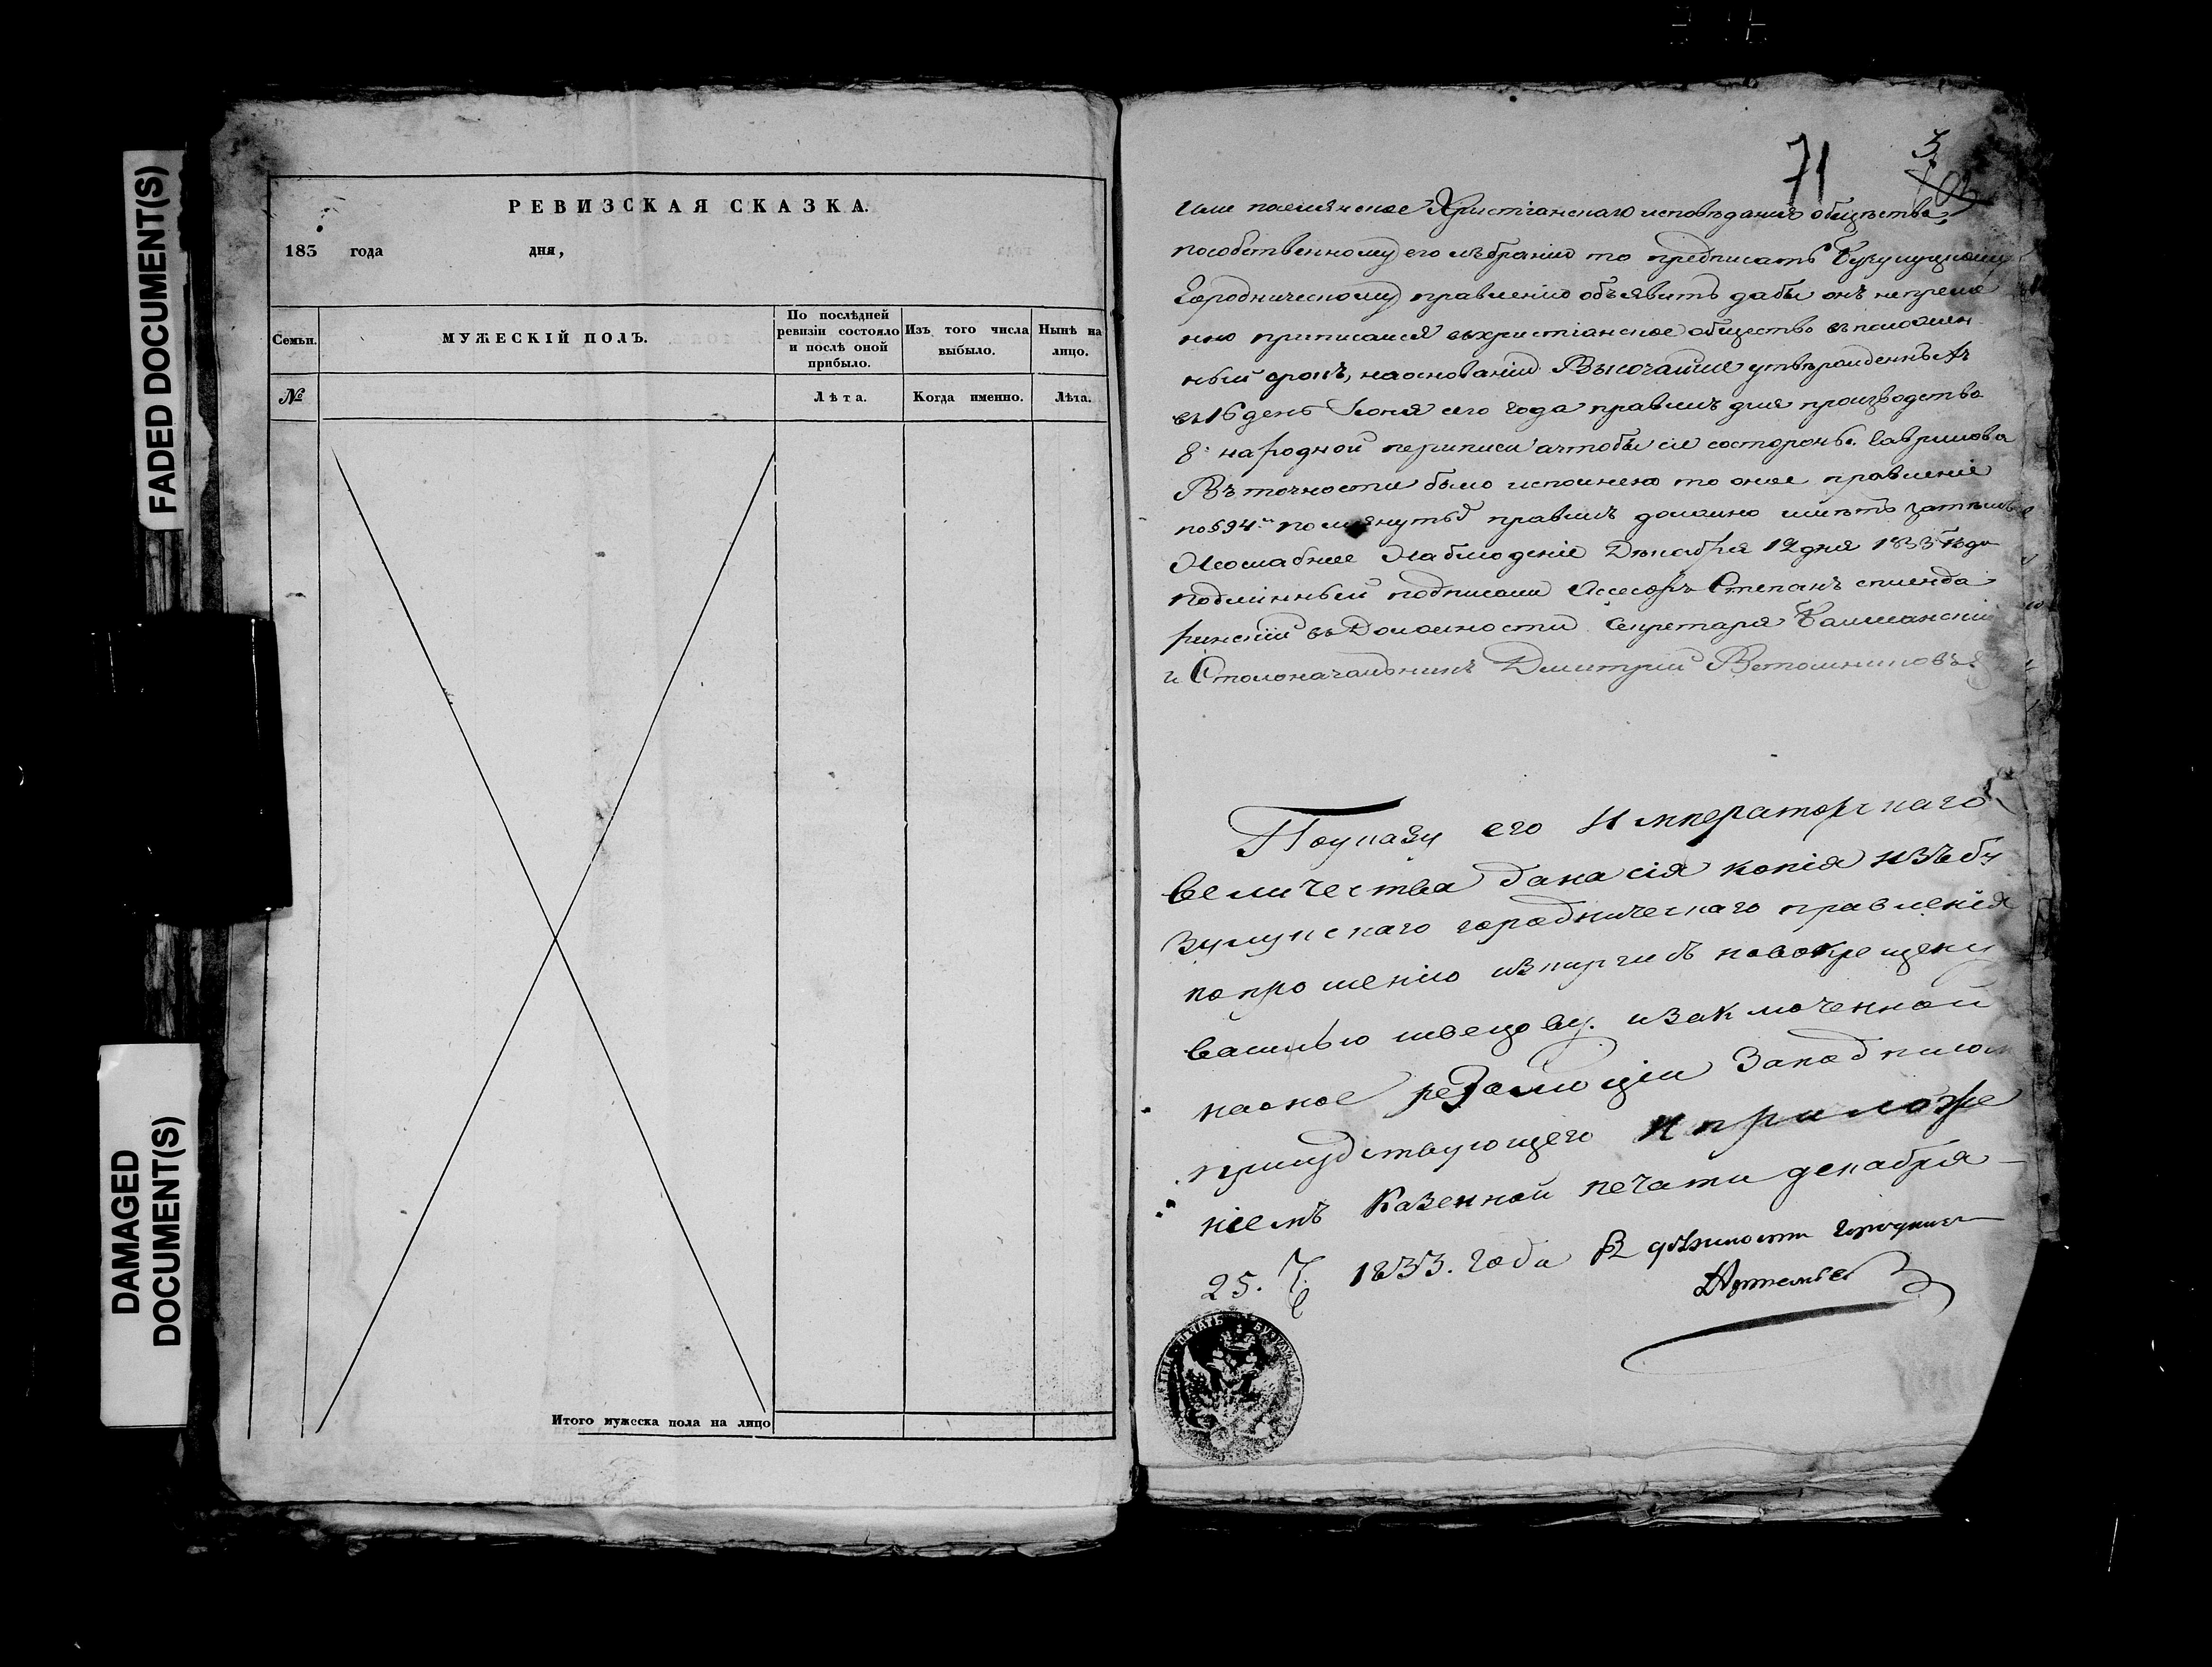 FADED DOCUMENT(S)
DAMAGED
DOCUMENT(S)
РЕВИЗСКАЯ СКАЗКА.
183 года дня,
Семьи.
МУЖЕСКІЙ ПОЛЪ.
По послѣдней
ревизіи состояло
и послѣ оной
прибыло.
Изъ того числа
выбыло.
Нынѣ на
лицо.
№
Лѣта.
Когда именно.
Лѣта.
Итого мужеска пола на лицо
71
3
или Христіанскаго исповѣданія общества
пособственному его избранію то предписать
Городническому правленію объявить дабы онъ непреме
нно приписался въхристіанское общество
ный срокъ, наоснованіи Высочайше утвержденныхъ
въ 16 день Іюня сего года правилъ для производства
8й народной переписи ачтобы сіе состороны Гаврилова
Въ точности было исполнено то оное правленіе
по § 94му помянутыхъ правилъ должно имѣть
Наблюденіе Декабря 12 дня 1833 года
подлинный подписали Ассесоръ Степанъ
въ Должности Секретаря
и Столоначальникъ Дмитрій
Поуказу его Императорскаго
величества дана сія копія изъ бу
зулукскаго городническаго правленія
попрошенію новокрещену
василью швецову.
резолюціи Заподписомъ
присудствующего и приложе
ніемъ Казенной печати декабря
25. 1833. года В должности городнич
Артемьев
ПЕЧАТЬ